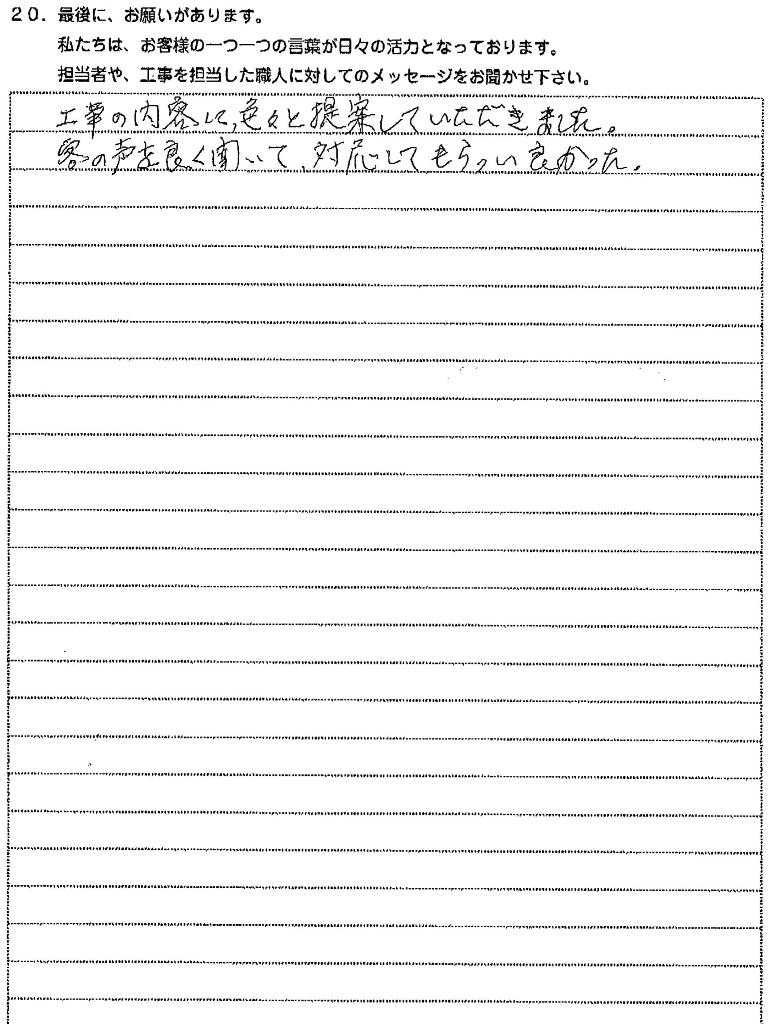 20. 最後に、お願いがあります。
私たちは、お客様の一つ一つの言葉が日々の活力となっております。
担当者や、工事を担当した職人に対してのメッセージをお聞かせ下さい。
工事の内容して、色々と提案していただきました。
客の声を良く聞いて、対応してもらっい良かった。